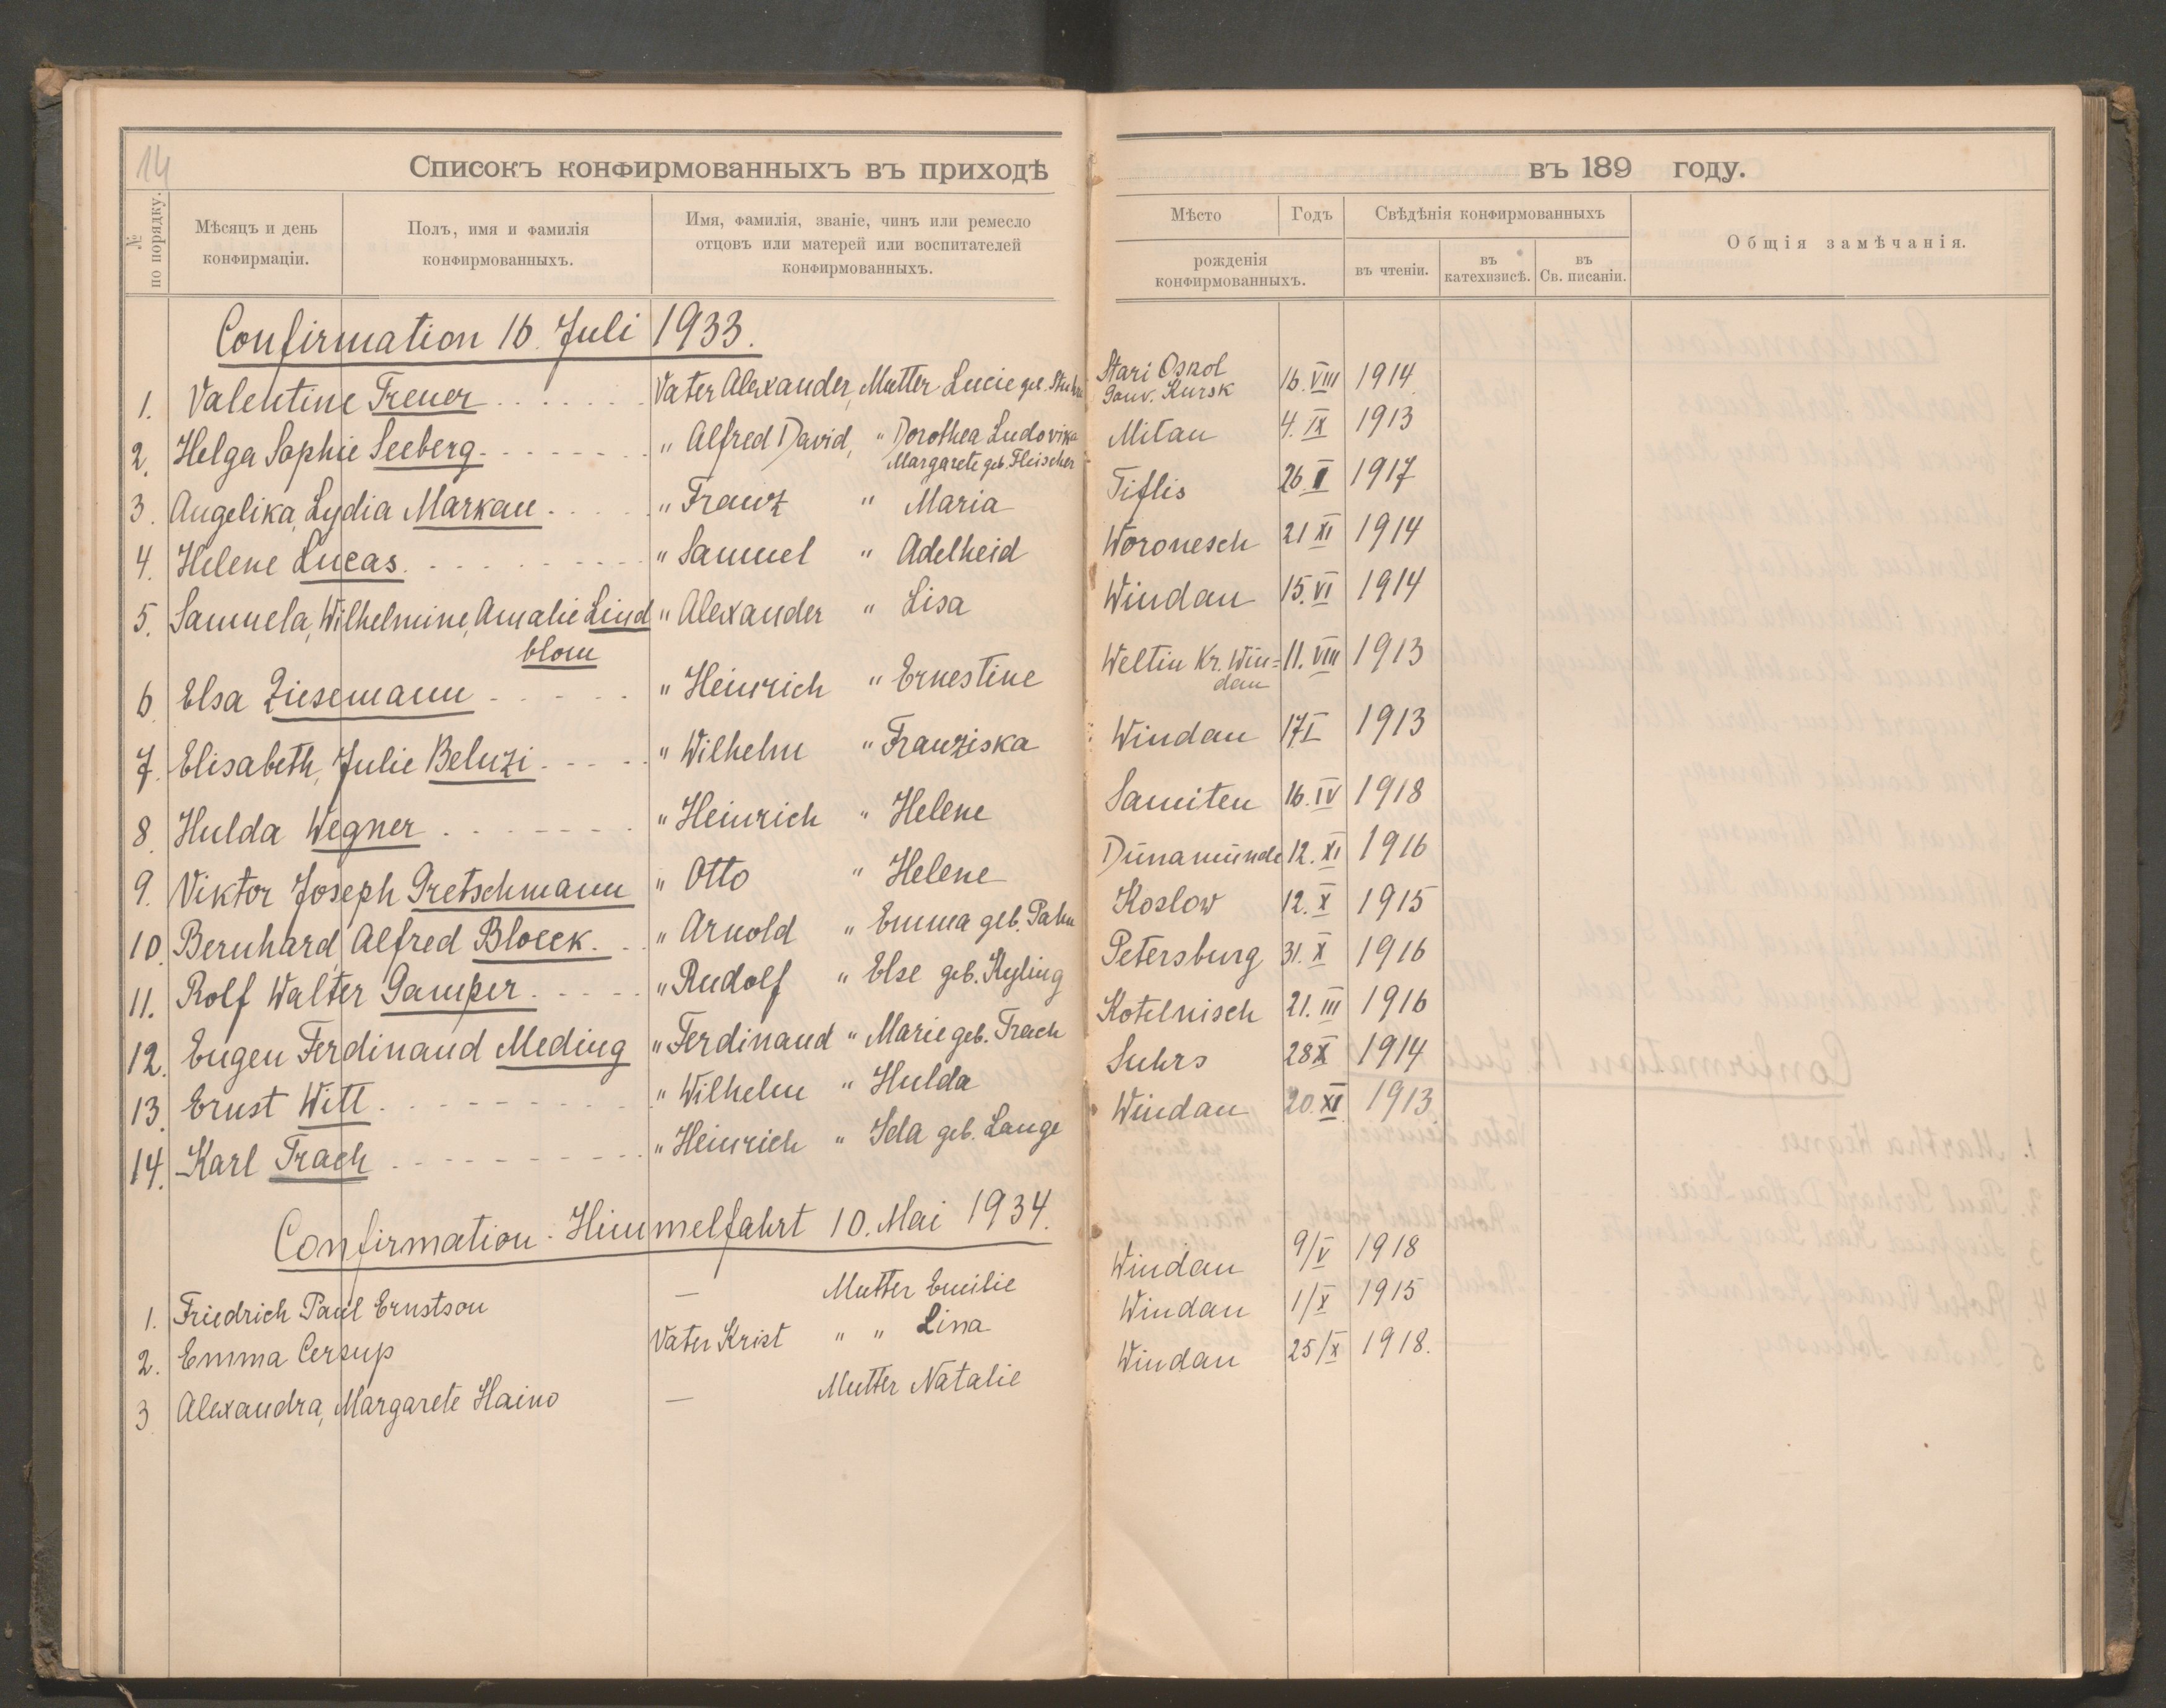 14
Списокъ конфирмованныхъ въ приходѣ
въ 189 году.
№ по порядку.
Мѣсяцъ и день
конфирмаціи.
Полъ, имя и фамилія
конфирмованныхъ.
Имя, фамилія, званіе, чинъ или ремесло
отцовъ или матерей или воспитателей
конфирмованныхъ.
Мѣсто
Годъ
рожденія
конфирмованныхъ.
Свѣдѣнія конфирмованныхъ
въ чтеніи.
въ катехизисѣ.
въ Св. писаніи.
Общія замѣчанія.
Confirmation 16. Juli 1933.
1. Valentine Treuer Vater Alexander, Mutter Lucie geb. Stari Oskol Gouv. Kursk 16. VIII 1914
2. Helga Sophie Seeberg " Alfred David, " Dorothea Ludovika Margarete geb. Fleischer Mitau 4. IX 1913
3. Angelika, Lydia Markau " Franz " Maria Tiflis 26. 1917
4. Helene Lucas " Samuel " Adelheid Woronesch 21 XI 1914
5. Samuela, Wilhelmine, Amalie Lind blom " Alexander " Lisa Windau 15. VI 1914
6 Elsa Ziesemann " Heinrich " Ernestine Weltin Kr. Win= dau 11. VIII 1913
7. Elisabeth, Julie Beluzi " Wilhelm " Franziska Windau 17 I 1913
8. Hulda Wegner " Heinrich " Helene Samiten 16. IV 1918
9. Viktor Joseph Gretschmann " Otto " Helene Dünamünde 12. XI 1916
10. Bernhard, Alfred Bloeck. " Arnold " Emma geb. Koslow 12. X 1915
11. Rolf Walter Gamper " Rudolf " Else geb. Ryling Petersburg 31. X 1916
12. Eugen Ferdinand Meding " Ferdinand " Marie geb. Trach Kotelnisch 21. III 1916
13. Ernst Witt " Wilhelm " Hulda Suhrs 28 1914
14. Karl Trach " Heinrich " Ida geb. Lange Windau 20. XI 1913
Confirmation - Himmelfahrt 10. Mai 1934.
1. Friedrich Paul Ernstson — Mutter Emilie Windau 9/V 1918
2. Emma Cersup Vater Krist " " Lina Windau 1/X 1915
3 Alexandra, Margarete Haino — Mutter Natalie Windau 25/X 1918.